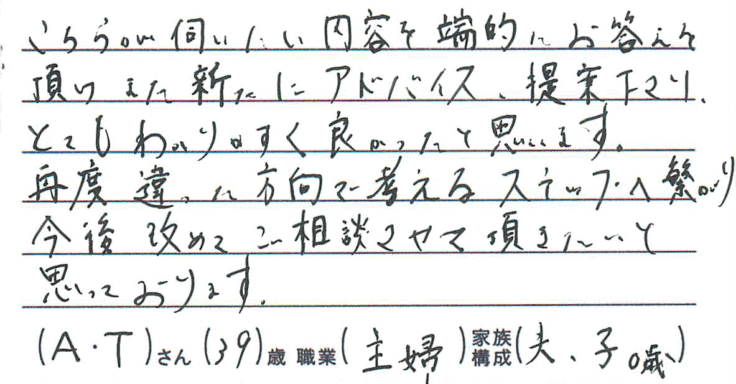 こちらが伺いたい内容を端的にお答えを
頂け また新たにアドバイス、提案下さり、
とてもわかりやすく良かったと思います。
再度違った方向で考えるステップへ繋がり
今後改めてご相談させて頂きたいと
思っております。
(A・T)さん(39)歳 職業(主婦)家族構成(夫、子0歳)